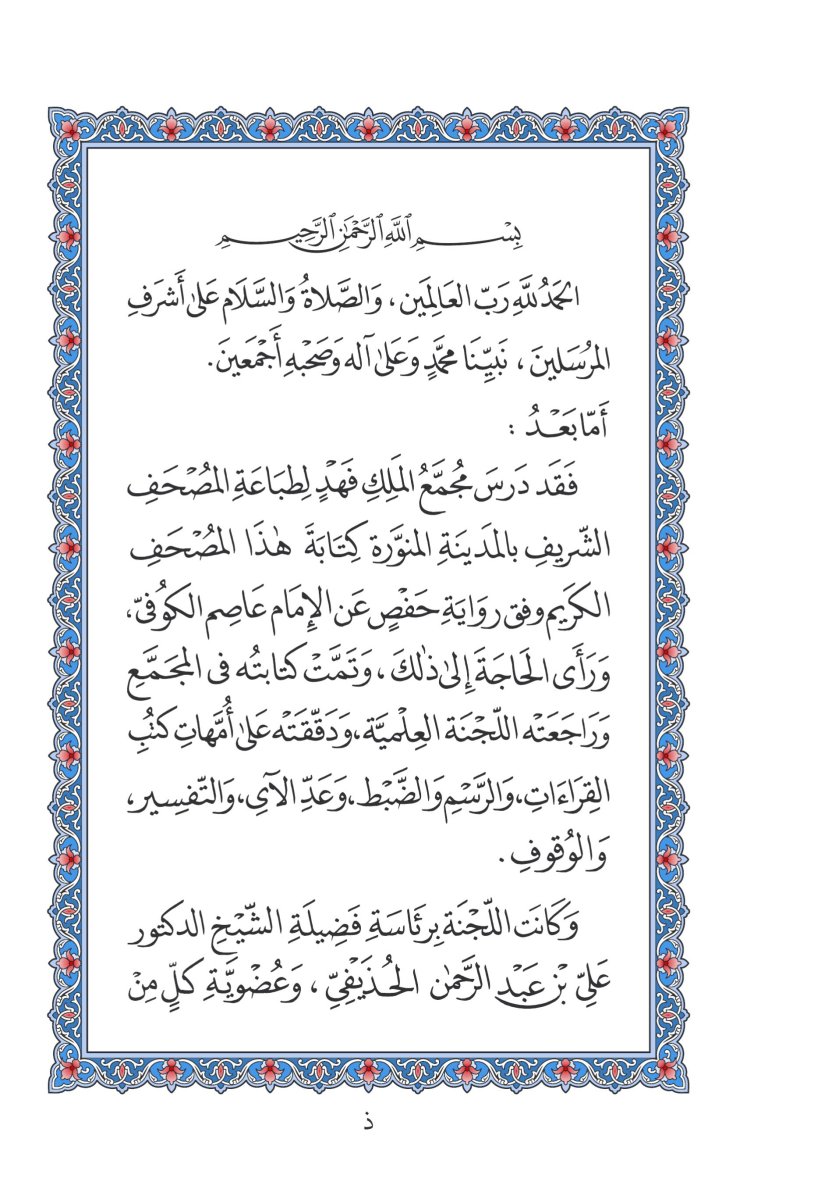 بِسْمِ ٱللَّهِ ٱلرَّحْمَٰنِ ٱلرَّحِيمِ
الحَمْدُ للَّهِ رَبِّ العَالمَين، وَالصَّلاةُ وَالسَّلَام عَلىٰ أَشرَفِ
المرُسَلينَ، نَبيِّنَا محمَّدٍ وَعَلىٰ آله وَصَحْبهِ أَجْمَعينَ.
أَمّا بَعْدُ :
فَقَد دَرسَ مُجمَّعُ الملَكِ فَهْدٍ لِطبَاعَةِ المصُْحَفِ
الشّريفِ بالمدَينَةِ المنوَّرة كِتَابَةَ هٰذَا المصُْحَفِ
الكَريم وفق روَايَةِ حَفْصٍ عَن الإِمَام عَاصِم الكوُفيّ،
وَرَأَى الحَاجَةَ إِلىٰ ذٰلكَ، وَتَمَّتْ كتابتُه فى المجَمَّعِ
وَرَاجَعَتْه اللّجْنَة العِلْميَّة، وَدَقّقَتْه عَلىٰ أُمَّهاتِ كتُبِ
القِرَاءَاتِ، وَالرَّسْمِ وَالضَّبْط، وَعَدِّ الآىِ، وَالتّفسِير،
وَالوُقوفِ.
وَكَانَت اللّجْنَة برئَاسَةِ فَضِيلَةِ الشّيْخِ الدكتور
عَلىّ بْن عَبْد الرَّحمٰن الحُذَيْفِيّ، وَعُضْويَّةِ كلٍّ مِنْ
ذ